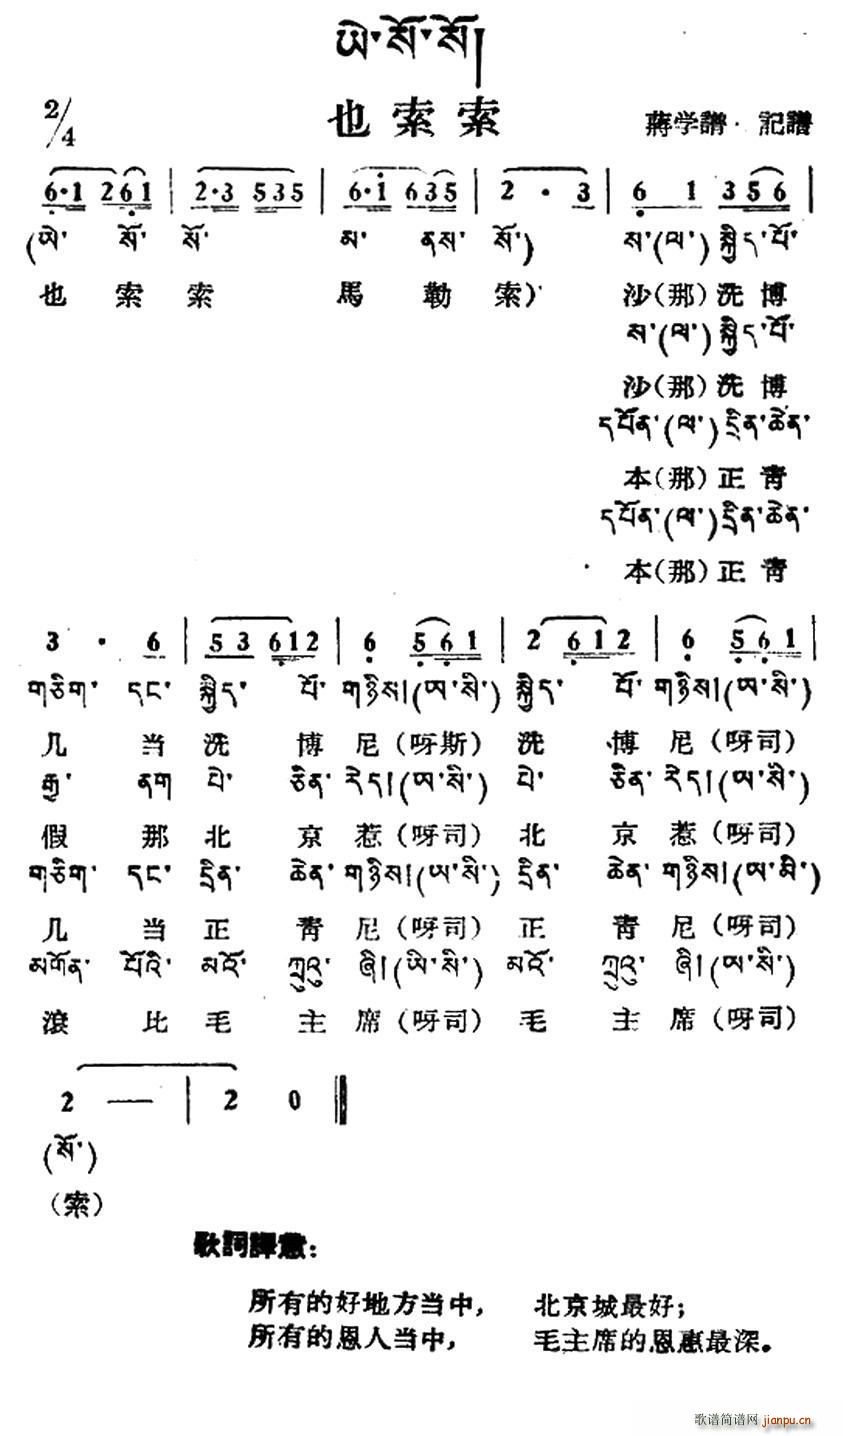 ཡེ་སོ་སོ།
2/4
也索索
蔣学譜·記譜
6·1 2 6 1 | 2·3 5 3 5 | 6·i 6 3 5 | 2 · 3 | 6 1 3 5 6 |
(ཨེ་ སོ་ སོ་ མ་ ནས་ སོ་) ས་(ལ་)སྐྱིད་པོ་
也索索 馬勒索) 沙(那)洗博
ས་(ལ་)སྐྱིད་པོ་
沙(那)洗博
དཔོན་(ལ་)དྲིན་ཆེན་
本(那)正靑
དཔོན་(ལ་)དྲིན་ཆེན་
本(那)正靑
3 · 6 | 5 3 6 1 2 | 6 5 6 1 | 2 6 1 2 | 6 5 6 1 |
གཅིག་ དང་ སྐྱིད་ པོ་ གཉིས།(ཨ་སི་) སྐྱིད་ པོ་ གཉིས།(ཨ་སི་)
几当洗博尼(呀斯)洗博尼(呀司)
རྒྱ་ ནག པེ་ ཅིན་ རེད།(ཨ་སི་) པེ་ ཅིན་ རེད།(ཨ་སི་)
假那北京惹(呀司)北京惹(呀司)
གཅིག་ དང་ དྲིན་ ཆེན་ གཉིས།(ཨ་སི་) དྲིན་ ཆེན་ གཉིས།(ཨ་སི་)
几当正靑尼(呀司)正靑尼(呀司)
མགོན་ པོའི་ མའོ་ ཀྲུའུ་ ཞི།(ཡི་སི་) མའོ་ ཀྲུའུ་ ཞི།(ཨ་སི་)
滾比毛主席(呀司)毛主席(呀司)
2 — | 2 0 ‖
(སོ་)
(索)
歌詞譯意:
所有的好地方当中, 北京城最好;
所有的恩人当中, 毛主席的恩惠最深。
歌谱简谱网 jianpu.cn